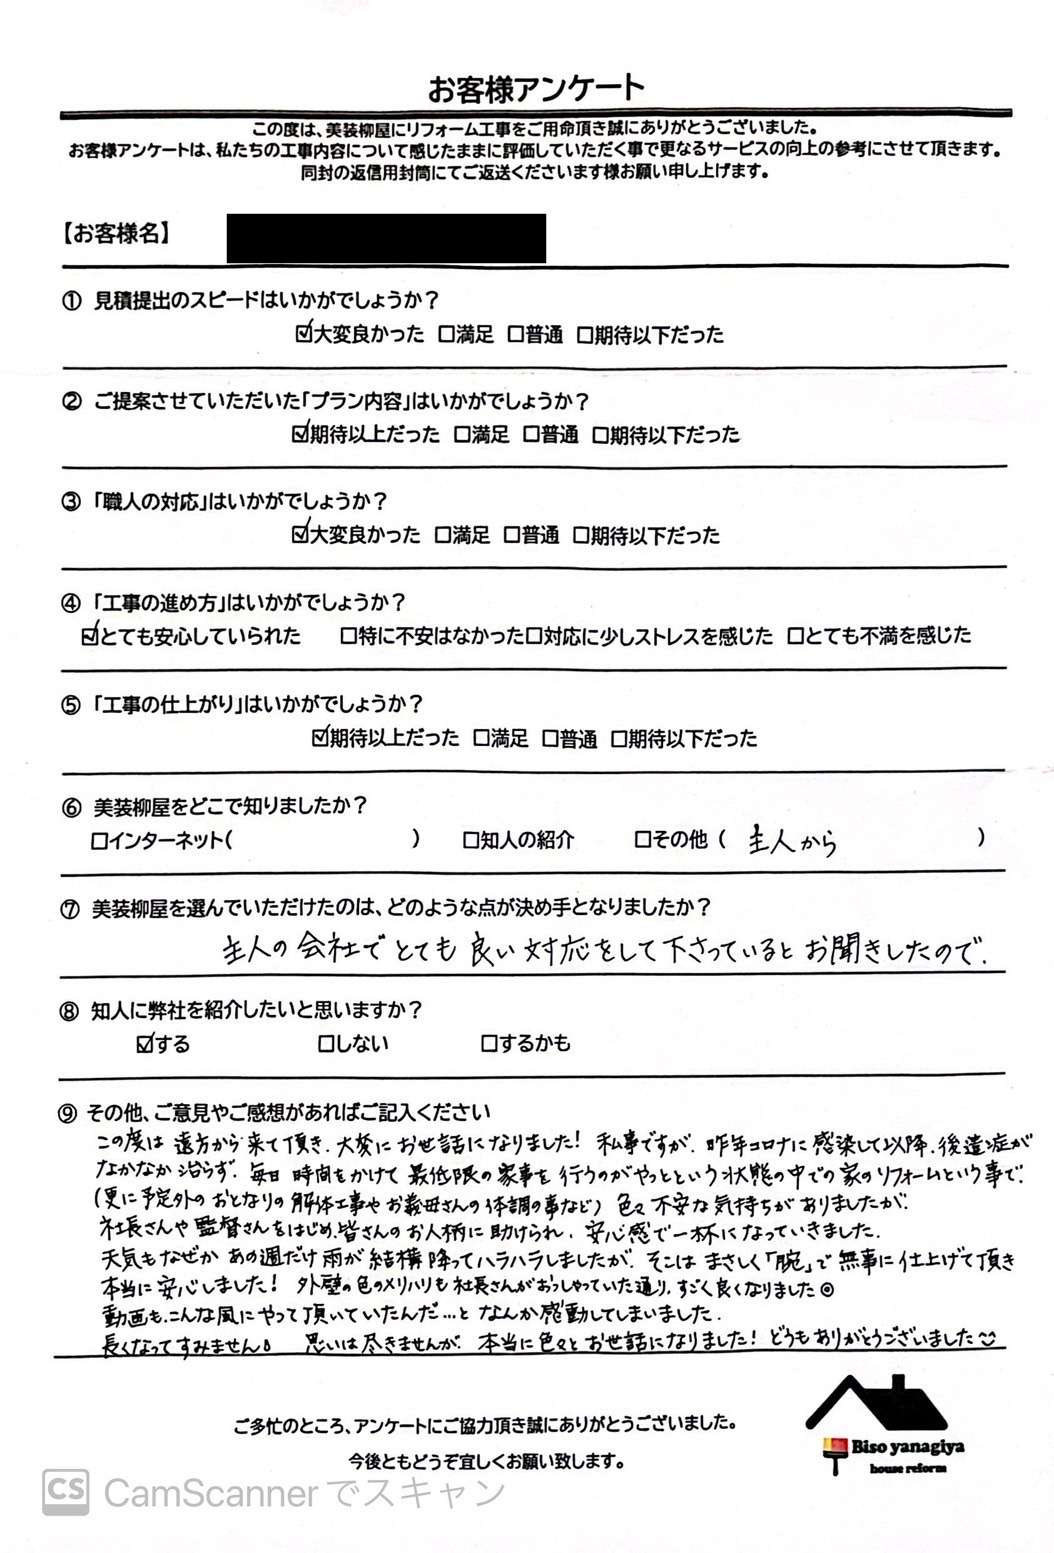 お客様アンケート
この度は、美装柳屋にリフォーム工事をご用命頂き誠にありがとうございました。
お客様アンケートは、私たちの工事内容について感じたままに評価していただく事で更なるサービスの向上の参考にさせて頂きます。
同封の返信用封筒にてご返送くださいます様お願い申し上げます。
【お客様名】
① 見積提出のスピードはいかがでしょうか？
☑大変良かった □満足 □普通 □期待以下だった
② ご提案させていただいた「プラン内容」はいかがでしょうか？
☑期待以上だった □満足 □普通 □期待以下だった
③ 「職人の対応」はいかがでしょうか？
☑大変良かった □満足 □普通 □期待以下だった
④ 「工事の進め方」はいかがでしょうか？
☑とても安心していられた □特に不安はなかった□対応に少しストレスを感じた □とても不満を感じた
⑤ 「工事の仕上がり」はいかがでしょうか？
☑期待以上だった □満足 □普通 □期待以下だった
⑥ 美装柳屋をどこで知りましたか？
□インターネット( ) □知人の紹介 □その他 ( 主人から )
⑦ 美装柳屋を選んでいただけたのは、どのような点が決め手となりましたか？
主人の会社でとても良い対応をして下さっているとお聞きしたので.
⑧ 知人に弊社を紹介したいと思いますか？
☑する □しない □するかも
⑨ その他、ご意見やご感想があればご記入ください
この度は 遠方から来て頂き、大変にお世話になりました! 私事ですが、昨年コロナに感染して以降、後遺症が
なかなか治らず、毎日 時間をかけて 最低限の家事を行うのがやっとという状態の中での家のリフォームという事で、
(更に予定外のおとなりの解体工事やお義母さんの体調の事など) 色々不安な気持ちがありましたが、
社長さんや監督さんをはじめ、皆さんのお人柄に助けられ、安心感で一杯になっていきました.
天気もなぜか あの週だけ雨が結構降ってハラハラしましたが、そこは まさしく「腕」で無事に仕上げて頂き
本当に安心しました! 外壁の色のメリハリも社長さんがおっしゃっていた通り、すごく良くなりました◎
動画も、こんな風にやって頂いていたんだ…と なんか感動してしまいました.
長くなってすみません 思いは尽きませんが、本当に色々とお世話になりました! どうもありがとうございました
ご多忙のところ、アンケートにご協力頂き誠にありがとうございました。
今後ともどうぞ宜しくお願い致します。
Biso yanagiya
house reform
CS CamScannerでスキャン